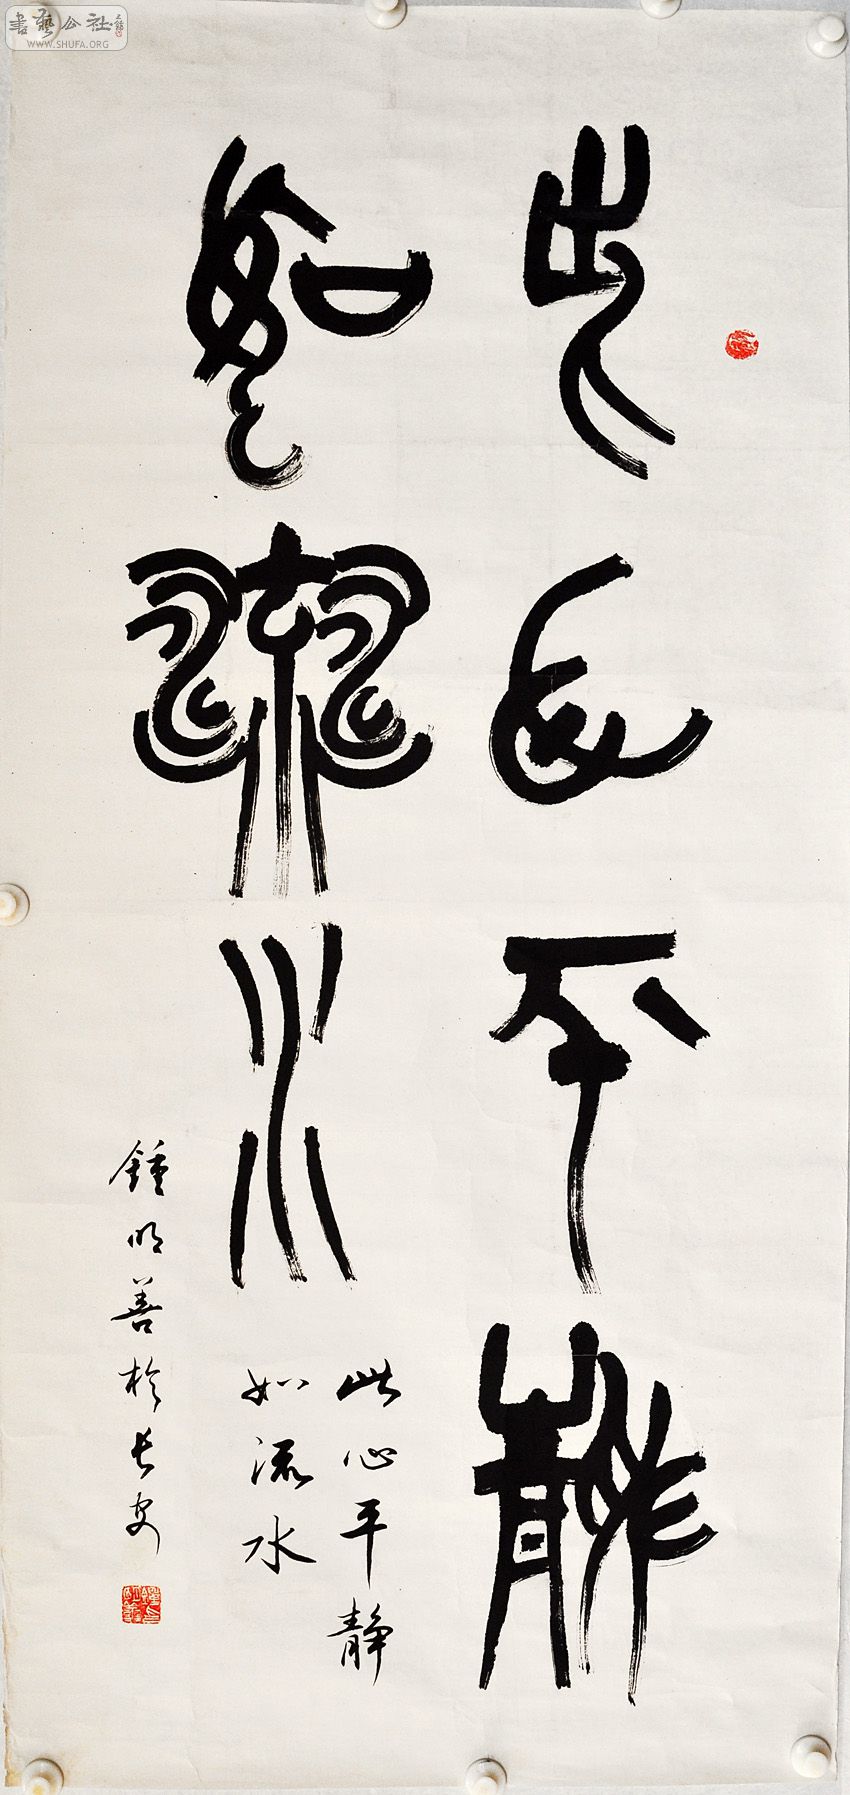 此心平静
如流水
此心平静
如流水
鍾明善於长安
書藝公社
WWW.SHUFA.ORG